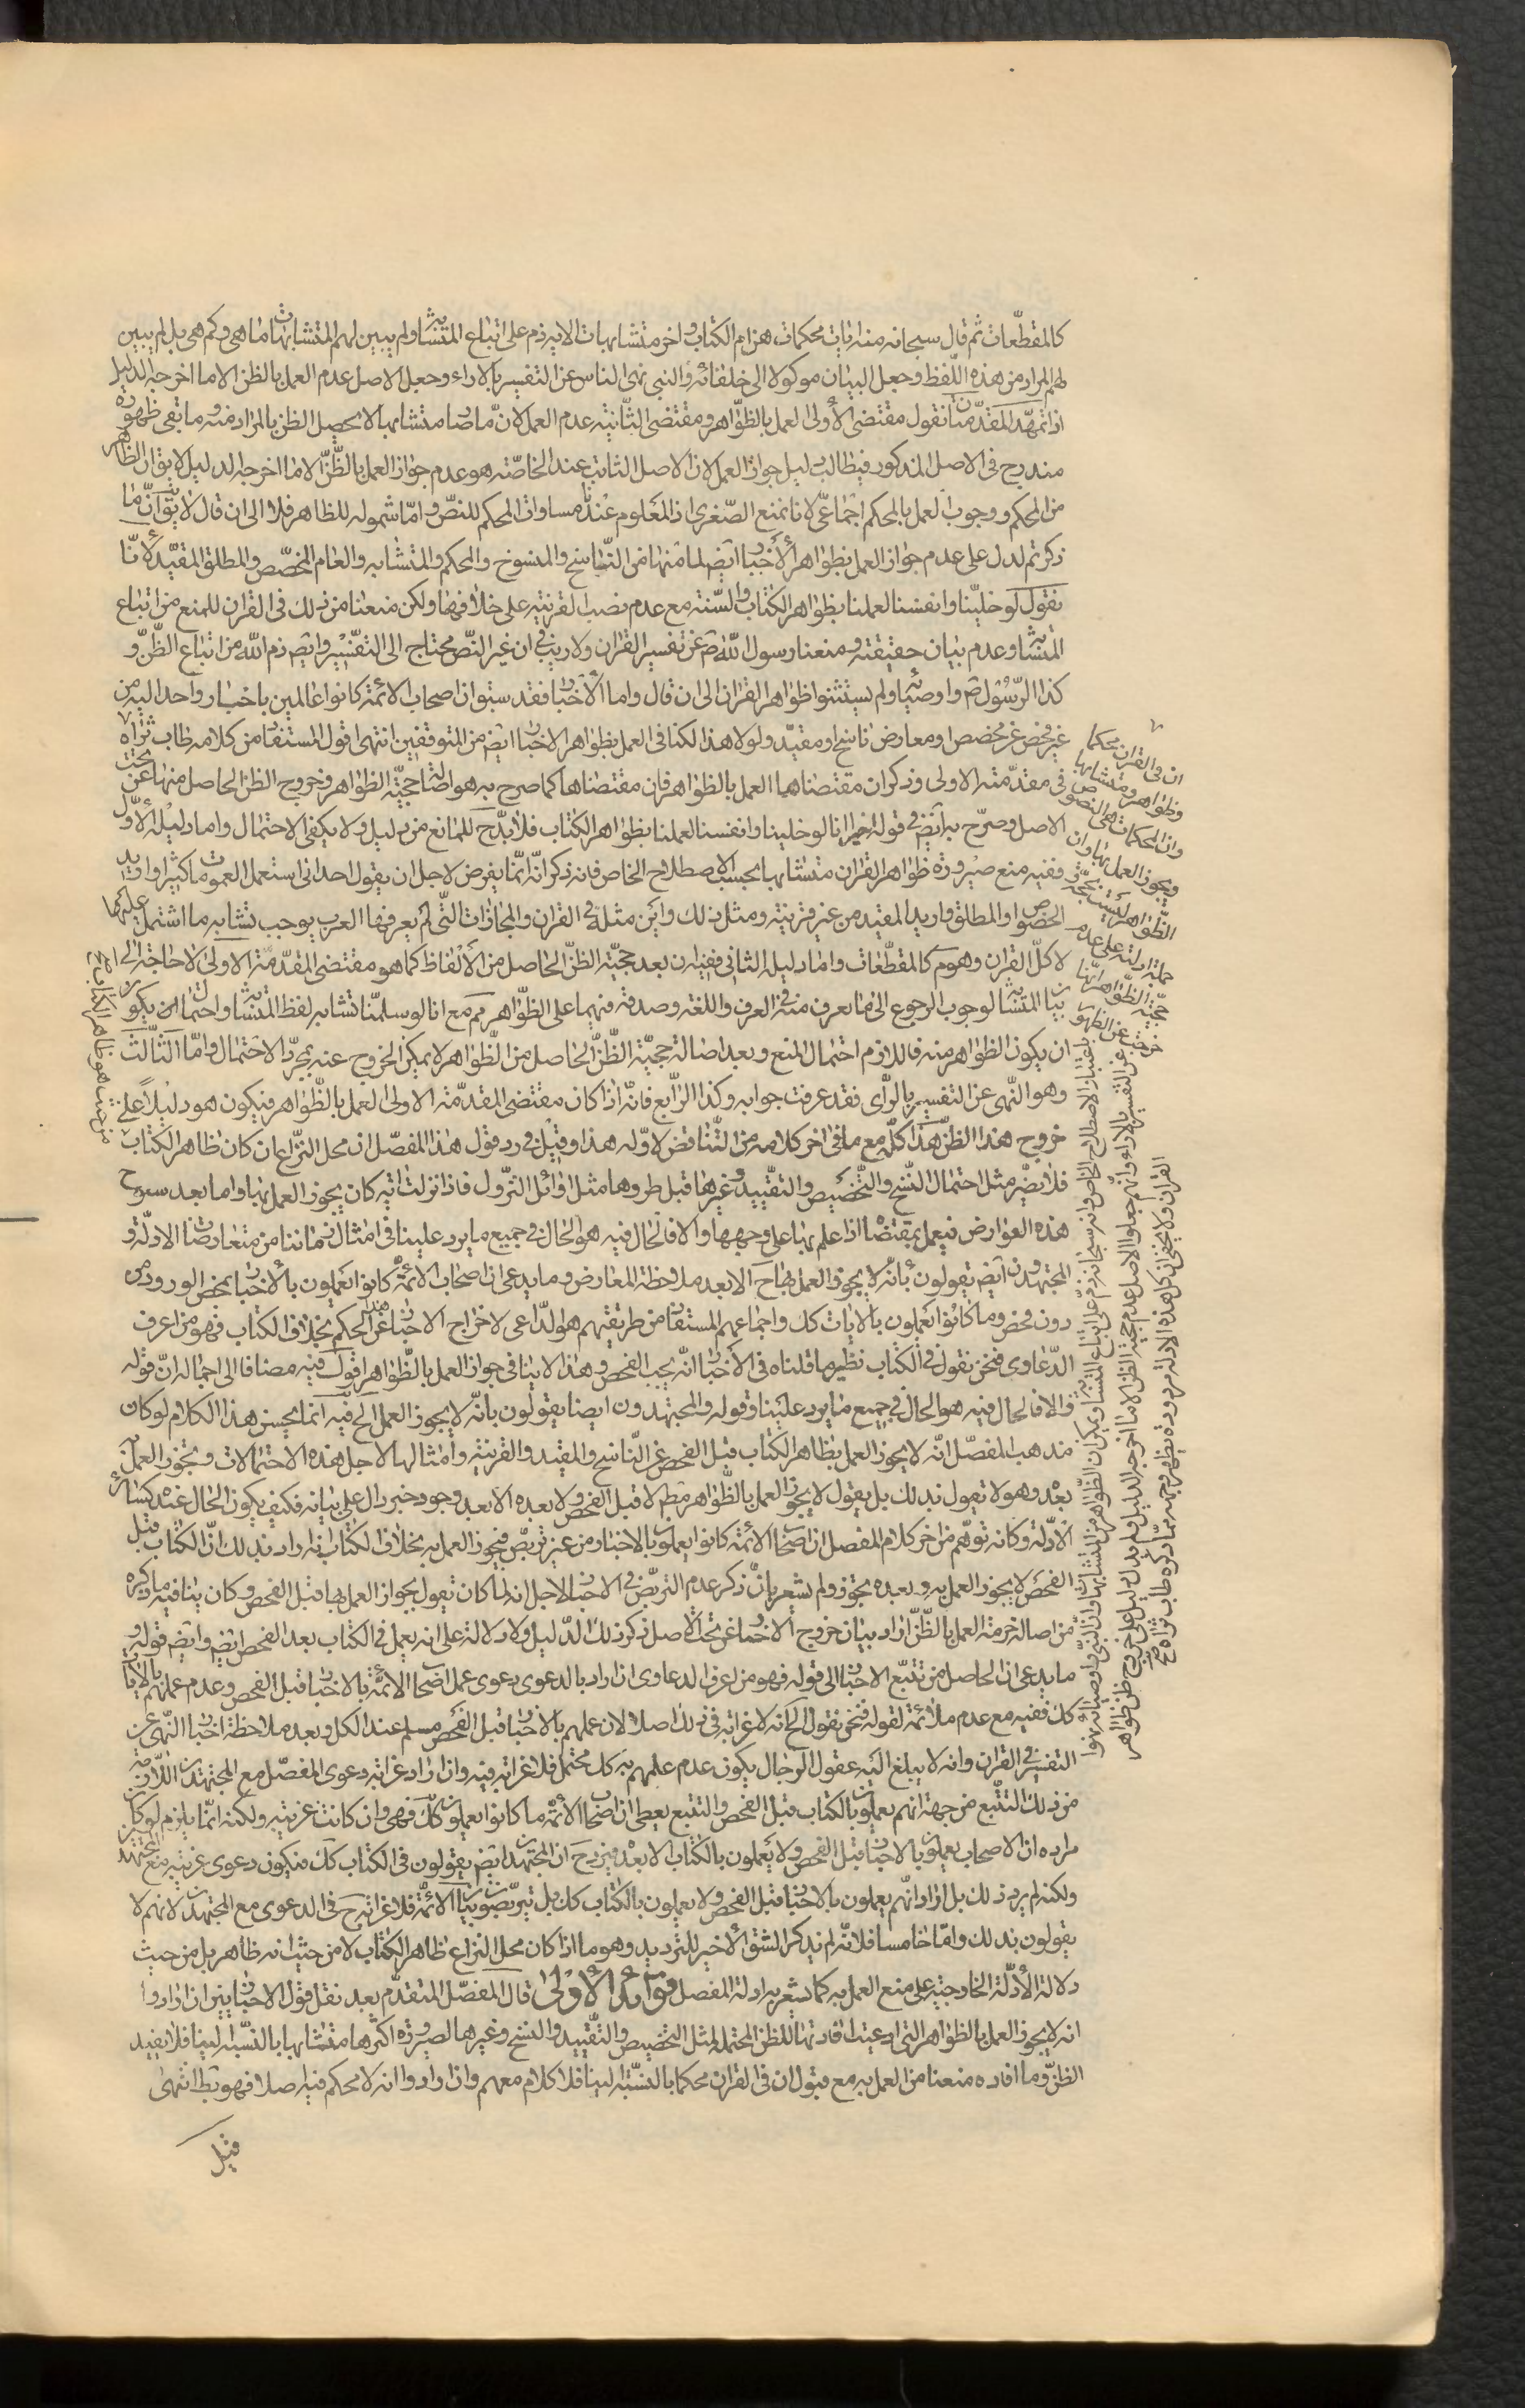 كالمقطّعات ثم قال سبحانه منه ايات محكمات هن ام الكتاب واخر متشابهات الايه ذم على اتباع المتشابه ولم يبين لهم المتشابهات ما هى وكم هى بل لم يبين
لهم المراد من هذه اللّفظ وجعل البيان موكولا الى خلفائه والنبى نهى الناس عن التفسير بالاراء وجعل الاصل عدم العمل بالظن الا ما اخرجه الدليل
اذا تمهّد المقدّمتان فنقول مقتضى الأولى العمل بالظوّاهر ومقتضى الثّانية عدم العمل لانّ ما صار متشابها لا يحصل الظن بالمراد منه وما بقى ظهوره
مندرج فى الاصل المذكور فيطالب بدليل جواز العمل لان الاصل الثابت عند الخاصّة هو عدم جواز العمل بالظّنّ الا ما اخرجه الدليل لا يق ان الظاهر
من المحكم ووجوب العمل بالمحكم اجماعىّ لانا نمنع الصّغرى اذ المعلوم عندنا مساواة المحكم للنصّ وامّا شموله للظاهر فلا الى ان قال لا يق انّ ما
ذكرتم لدل على عدم جواز العمل بظواهر الأخبار ايضا لما فيها من النّاسخ والمنسوخ والمحكم والمتشابه والعام المخصّص والمطلق المقيّد لأنّا
نقول لو خليّنا وانفسنا لعملنا بظواهر الكتاب والسّنة مع عدم نصب القرينة على خلافها ولكن منعنا من ذلك فى القران للمنع من اتباع
المتشابه وعدم بيان حقيقته ومنعنا رسول اللّه ص عن تفسير القران ولا ريب فى ان غير النّص محتاج الى التفسير وايضا ذم اللّه من اتباع الظّنّ و
كذا الرّسول ص واوصيائه ولم يستثنوا ظواهر القران الى ان قال واما الأخبار فقد سبق ان اصحاب الائمة كانوا عاملين باخبار واحد اليه من
غير فحص عن مخصص او معارض ناسخ او مقيّد ولولا هذا لكنا فى العمل بظواهر الاخبار ايضا من المتوقفين انتهى اقول المستفاد من كلامه طاب ثراه
فى مقدّمته الاولى وذكر ان مقتضاها العمل بالظواهر فان مقتضاها كما صرح به هو اصالة حجيّة الظواهر وخروج الظن الحاصل منها عن تحت
الاصل وصرّح به ايضا فى قوله اخيرا انا لو خلينا وانفسنا لعملنا بظواهر الكتاب فلابدّ ح للمانع من دليل ولا يكفى الاحتمال واما دليله الأوّل
ففيه منع صيرورة ظواهر القران متشابها بحسب الاصطلاح الخاص فانه ذكر انّه انّما يفرض لاجل ان يقول احد انى استعمل العمومات كثيرا واريد
الخصوص او المطلق واريد المقيد من غير قرينة ومثل ذلك واين مثله فى القران والمجازات التى لم يعرفها العرب يوجب تشابه ما اشتمل عليه كما
لا كلّ القران وهو م كالمقطّعات واما دليله الثانى ففيه ان بعد حجيّة الظنّ الحاصل من الألفاظ كما هو مقتضى المقدّمة الاولى لا حاجة الى
بيان المتشابه لوجوب الرجوع الى ما يعرف منه فى العرف واللغة وصدقه فيهما على الظوّاهر م مع انا لو سلمنا تشابه لفظ المتشابه واحتمال ان يكون
ان يكون الظواهر منه فاللازم احتمال المنع وبعد اصالة حجيّة الظّنّ الحاصل من الظّواهر لا يمكن الخروج عنه بمجرّد الاحتمال وامّا الثّالث
وهو النّهى عن التفسير بالرّأى فقد عرفت جوابه وكذا الرّابع فانّه اذا كان مقتضى المقدّمة الاولى العمل بالظّواهر فيكون هو دليلاً على
خروج هذا الظنّ هذا كلّه مع ما فى اخر كلامه من التّناقض لاوّله هذا وقيل فى رد قول هذا المفصّل ان محل النزّاع ان كان ظاهر الكتاب
فلا يضرّ مثل احتمال النّسخ والتّخصيص والتقييد وغيرها قبل طروها مثل اوائل النزول فاذا نزلت اية كان يجوز العمل بها واما بعد سنوح
هذه العوارض فيعمل بمقتضاها اذا علم بها على وجهها والا فالحال فيه هو الحال فى جميع ما يرد علينا فى امثال زماننا من متعارضات الادلّة و
المجتهدون ايضا يقولون بأنّه لا يجوز العمل بها ح الا بعد ملاحظة المعارض وما يدعى ان اصحاب الأئمّة كانوا يعملون بالأخبار بمحض الورود من
دون فحص وما كانوا يعملون بالايات كك واجماعهم المستفاد من طريقتهم هو الدّاعى لاخراج الاخبار عن هذا الحكم بخلاف الكتاب فهو من اعرف
الدّعاوى فنحن نقول فى الكتاب نظير ما قلناه فى الأخبار انّه يجب الفحص وهذا لا ينافى جواز العمل بالظّواهر اقول فيه مضافا الى اجماله انّ قوله
والا فالحال فيه هو الحال فى جميع ما يرد علينا وقوله والمجتهدون ايضا يقولون بانّه لا يجوز العمل الخ فيه انما يحسن هذا الكلام لو كان
مذهب المفصّل انّه لا يجوز العمل بظاهر الكتاب قبل الفحص عن النّاسخ والمقيد والقرينة وامثالها لاجل هذه الاحتمالات ويجوز العمل
بعده وهو لا يقول بذلك بل يقول لا يجوز العمل بالظّواهر مطلقا لا قبل الفحص ولا بعده الا بعد وجود خبر دال على بيانه فكيف يكون الحال عنده كسائر
الادّلة وكانه توهّم من اخر كلام المفصل ان اصحاب الأئمّة كانوا يعملون بالاخبار من غير تربّص فيجوز العمل به بخلاف الكتاب انه اراد بذلك انّ الكتاب قبل
الفحص لا يجوز العمل به وبعده يجوز ولم يشعر بانّ ذكر عدم التربّص فى الاخبار لاجل انه لما كان يقول بجواز العمل بها قبل الفحص وكان ينافيه ما ذكره
من اصالة حرمة العمل بالظّنّ اراد بيان خروج الاخبار عن تحت الاصل فذكر ذلك الدّليل ولا دلالة على انه يعمل فى الكتاب بعد الفحص ايضا وايضا قوله و
ما يدعى ان الحاصل من تتبّع الاخبار الى قوله فهو من اعرف الدعاوى ان اراد بالدعوى دعوى عمل اصحاب الائمّة بالاخبار قبل الفحص وعدم عملهم بالايات
كك ففيه مع عدم ملائمة لقوله فنحن نقول الخ انه لا غرابة فى ذلك اصلا لان عملهم بالاخبار قبل الفحص مسلم عند الكل وبعد ملاحظة اخبار النّهى عن
التفسير فى القران وانه لا يبلغ اليه عقول الرّجال يكون عدم عملهم به كك محتمل فلا غرابة فيه وان اراد غرابة دعوى المفصّل مع المجتهدين اللازمة
من ذلك التتبّع من جهة انهم يعملون بالكتاب قبل الفحص والتتبع يعطى ان اصحاب الائمّة ما كانوا يعملون كك فهى وان كانت غريبة ولكنه انّما يلزم لو كان
مراده ان الاصحاب يعملون بالاخبار قبل الفحص ولا يعملون بالكتاب الا بعده فيرد ح ان المجتهدين ايضا يقولون فى الكتاب كك فيكون دعوى غريبة مع المجتهدين
ولكنه لم يرد ذلك بل اراد انّهم يعملون بالاخبار قبل الفحص ولا يعملون بالكتاب كك بل يتربّصون بيان الائمّة فلا غرابة ح فى الدعوى مع المجتهدين لانهم لا
يقولون بذلك وامّا خامسا فلانّه لم يذكر الشق الأخير للترديد وهو ما اذا كان محل النزاع ظاهر الكتاب لا من حيث انه ظاهر بل من حيث
دلالة الأدلّة الخارجية على منع العمل به كما يشعر به ادلة المفصل فوائد الأولى قال المفصّل المتقدّم بعد نقل قول الاخباريين ان ارادوا
انه لا يجوز العمل بالظواهر التى ادعيت افادتها للظن المحتملة لمثل التخصيص والتّقييد والنسخ وغيرها لصيرورة اكثرها متشابها بالنّسبة الينا فلا يفيد
الظنّ وما افاده منعنا من العمل به مع قبول ان فى القران محكما بالنسّبة الينا فلا كلام معهم وان ارادوا انه لا محكم فيه اصلا فهو بط انتهى
قيل
ان فى القران محكما
وظواهر ومتشابها
وان المحكمات هى النصوص
ويجوز العمل بها وان
الظّواهر ليست بحجّة
جملة ادلته على عدم
حجّية الظّواهر انّها
خرجت عن الظهور
باعتبار الاصطلاح الخاص وانه سبحانه ذم على اتباع المتشابه ويمكن ان الظّواهر من المتشابهات وان النّبى واوصيائه نهوا
عن التفسير بالاراء وانّهم جعلوا الاصل عدم حجية الظن الا ما اخرجه الدليل ولم يدل دليل على خروج ظن ظواهر
القران ولا يخفى ان كل هذه الادلة مردودة يظهر وجهه ممّا ذكره طاب ثراه
من حيث هو ظاهر الكتاب